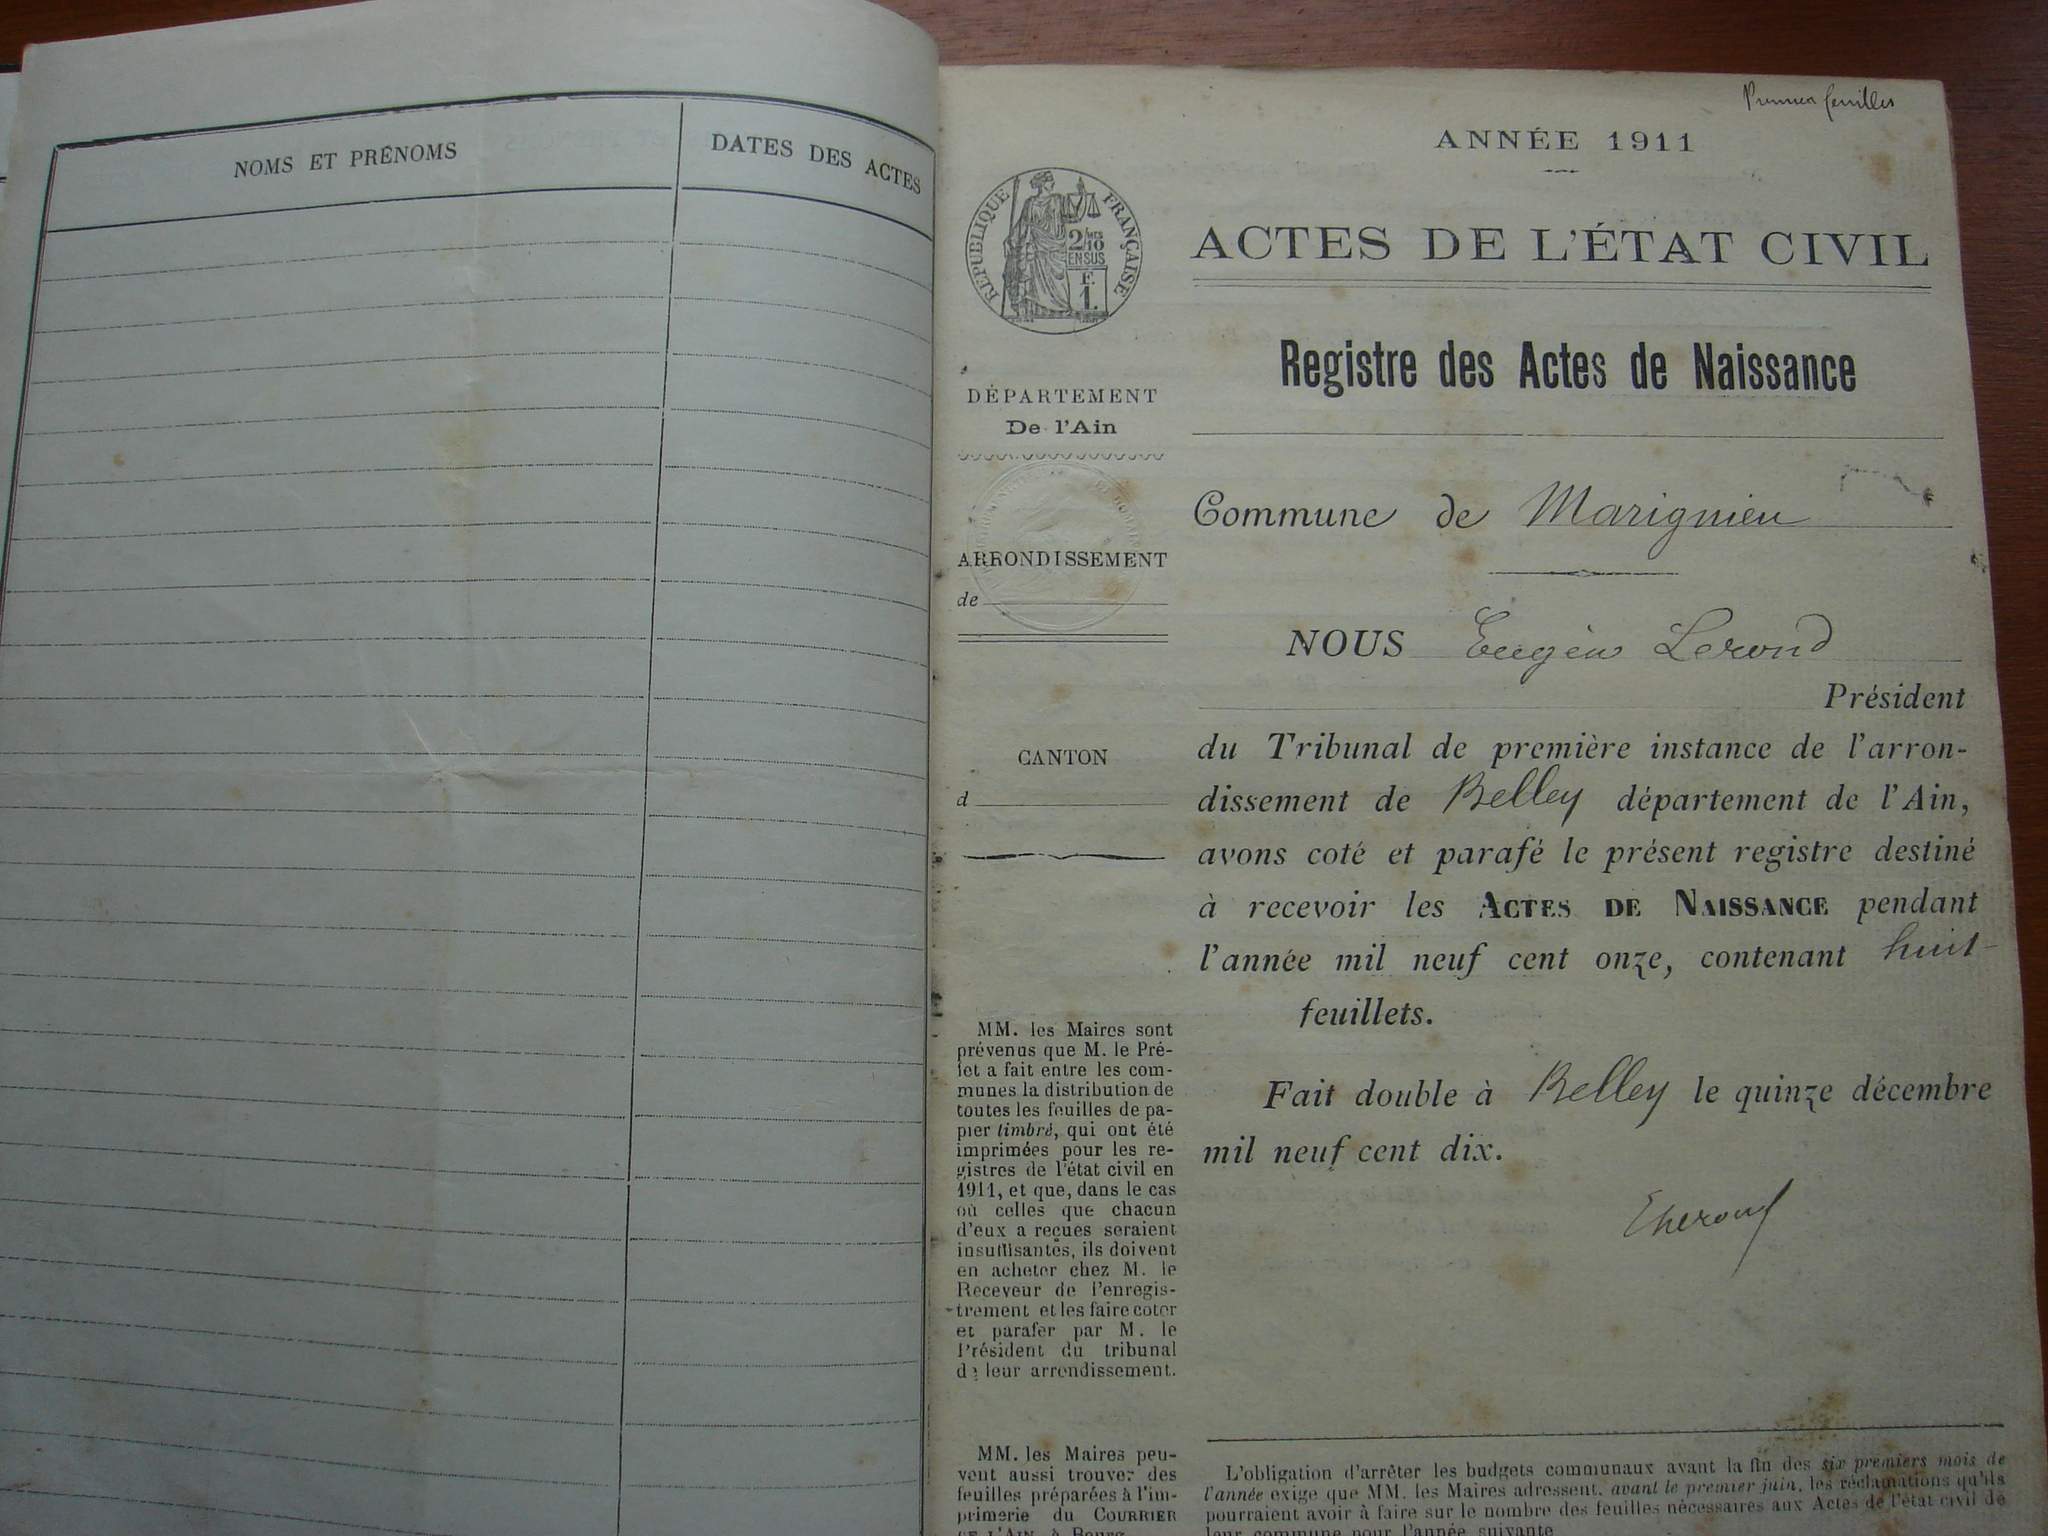 NOMS ET PRÉNOMS
DATES DES ACTES
Premier feuillet
ANNÉE 1911
RÉPUBLIQUE FRANÇAISE
2/10
EN SUS
F.
1.
ACTES DE L'ÉTAT CIVIL
Registre des Actes de Naissance
DÉPARTEMENT
De l'Ain
Commune de Marignieu
ARRONDISSEMENT
de
NOUS Eugène Lerond
Président
du Tribunal de première instance de l'arron-
dissement de Belley département de l'Ain,
avons coté et parafé le présent registre destiné
à recevoir les ACTES DE NAISSANCE pendant
l'année mil neuf cent onze, contenant huit
feuillets.
Fait double à Belley le quinze décembre
mil neuf cent dix.
CANTON
d
MM. les Maires sont
prévenus que M. le Pré-
fet a fait entre les com-
munes la distribution de
toutes les feuilles de pa-
pier timbré, qui ont été
imprimées pour les re-
gistres de l'état civil en
1911, et que, dans le cas
où celles que chacun
d'eux a reçues seraient
insuffisantes, ils doivent
en acheter chez M. le
Receveur de l'enregis-
trement et les faire coter
et parafer par M. le
Président du tribunal
de leur arrondissement.
MM. les Maires peu-
vent aussi trouver des
feuilles préparées à l'im-
primerie du COURRIER
DE L'AIN, à Bourg
L'obligation d'arrêter les budgets communaux avant la fin des six premiers mois de
l'année exige que MM. les Maires adressent, avant le premier juin, les réclamations qu'ils
pourraient avoir à faire sur le nombre des feuilles nécessaires aux Actes de l'état civil de
leur commune pour l'année suivante